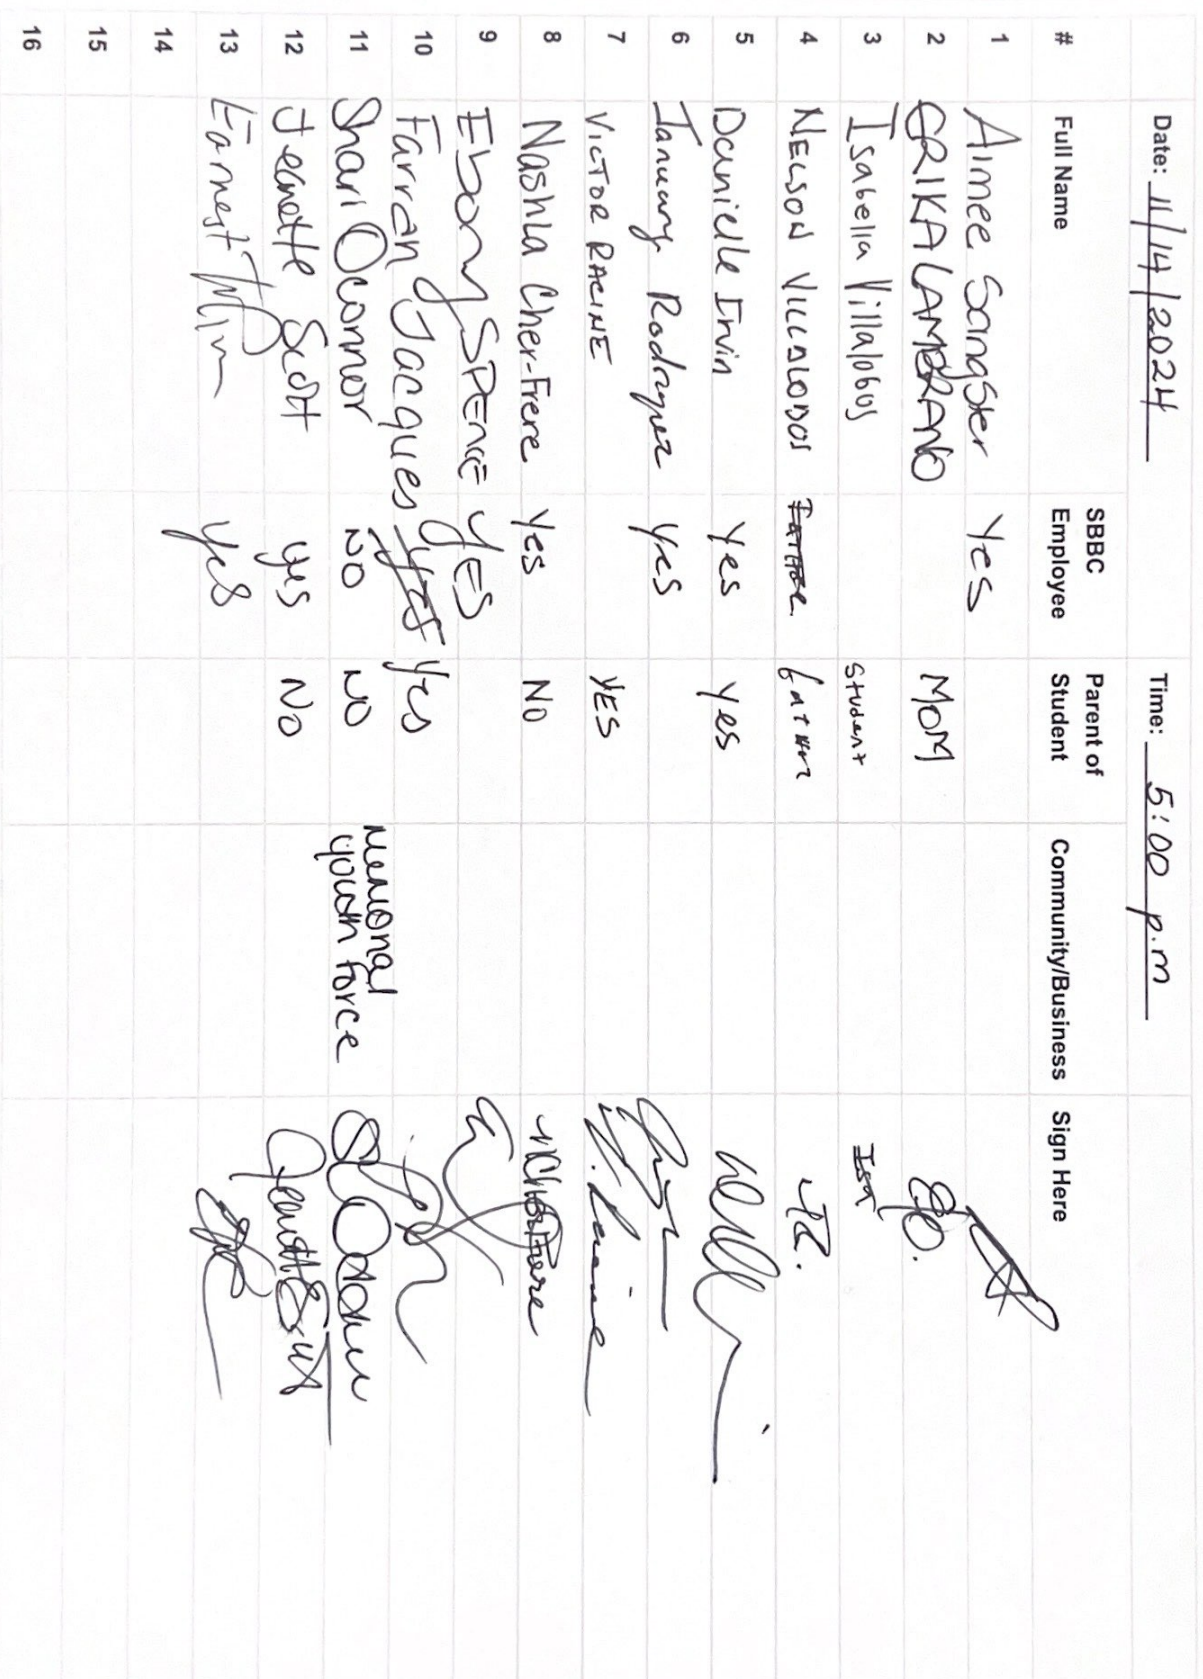 Date: 11/14/2024 Time: 5:00 p.m
# Full Name SBBC Employee Parent of Student Community/Business Sign Here
1 Aimee Sangster Yes
2 ERIKA LAMBRANO MOM
3 Isabella Villalobos Student Isa
4 NELSON VILLALOBOS father
5 Danielle Irvin Yes Yes
6 January Rodriguez Yes
7 VICTOR RACINE YES V. Racine
8 Nashla Cher-Frere Yes NO NCherFrere
9 Ebony SPENCE YES
10 Farrah Jacques Yes Yes
11 Shari Oconnor NO NO Memorial Youth Force
12 Jeanette Scott yes No
13 Earnest yes
14
15
16